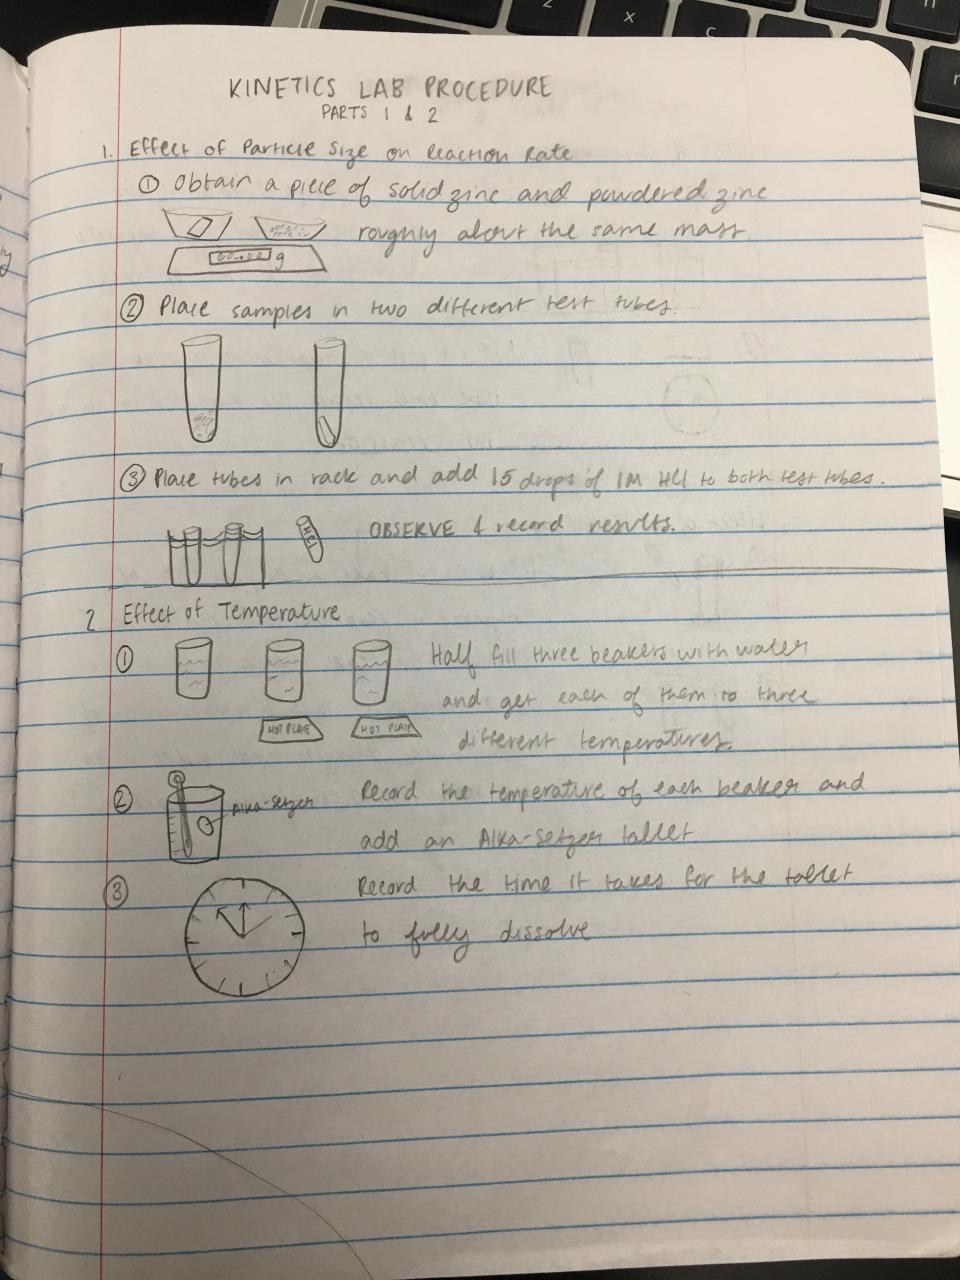 KINETICS LAB PROCEDURE
PARTS 1 & 2
1. Effect of Particle Size on Reaction Rate
① Obtain a piece of solid zinc and powdered zinc
roughly about the same mass.
g
② Place samples in two different test tubes.
③ Place tubes in rack and add 15 drops of 1M HCl to both test tubes.
HCl
OBSERVE & record results.
2. Effect of Temperature
① Half fill three beakers with water
and get each of them to three
HOT PLATE HOT PLATE
different temperatures.
② Record the temperature of each beaker and
Alka-Setzer
add an Alka-Setzer tablet.
③ Record the time it takes for the tablet
to fully dissolve